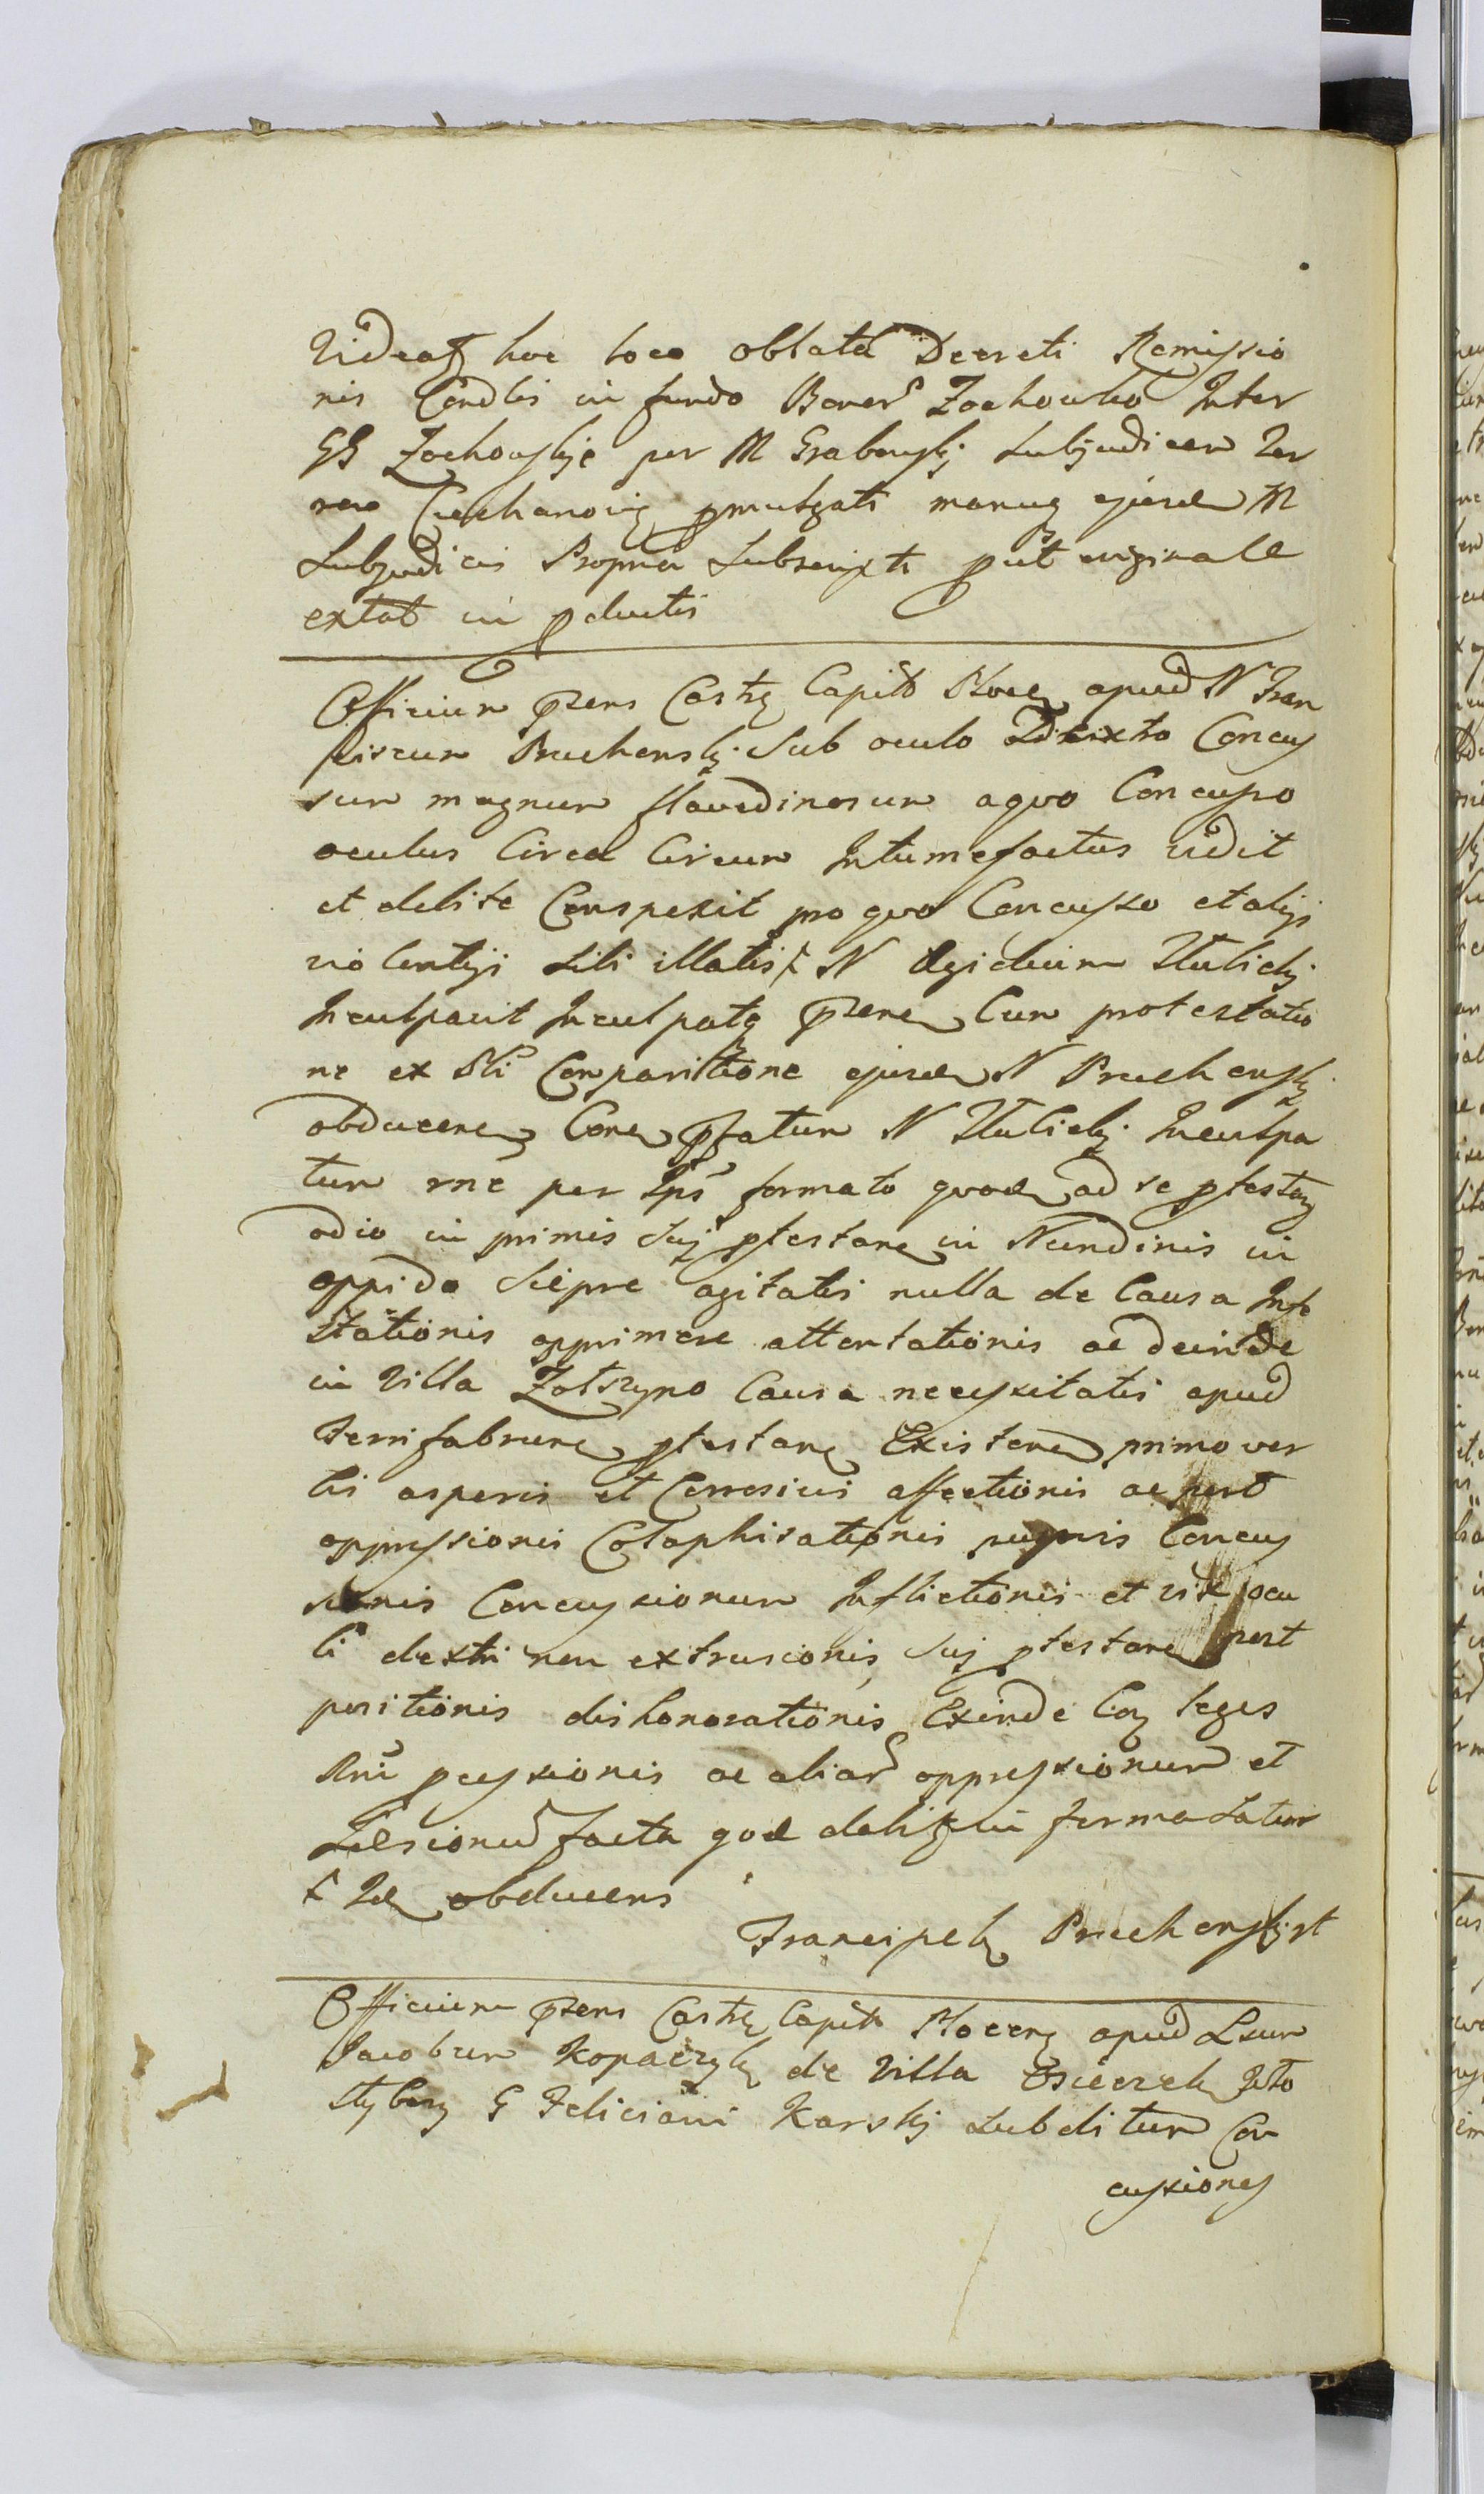 Videatz hoc loco oblata Decreti Remissio
nis Condlis in fundo Bonor Zochowko Inter
GG Zochowskje per M Grabowskj Subjudicem Ter
rae Ciechanovie pmulgati manuq ejusd M
Subjudicis Propria Subscripti put originale
extat in pductis
Officium pzens Castr Capit Ploce apud N Fran
ciscum Pruchenskj Sub oculo Dextro Concus
sum magnum flavedinosum aquo Concusso
oculus Circa Circum Intumefactus vidit
et debite Conspexit pro quo Concusso et alijs
violentijs sibi illatis N Egidium Stulickj
Inculpavit Inculpatq pzene Cum protestatio
ne ex Plī Comparitione ejusd N Pruchenskj
obducene Cone pfatum N Stulickj Inculpa
tum rne per Ips formato quod ad se ptestan
odio in primis Suj ptestane in Nundinis in
oppido Sierpre agitatis nulla de Causa Infe
stationis opprimere attentationis ac deinde
in Villa Zolszyno Causa necessitatis apud
Ferrifabrum ptestane Existene primo ver
bis asperis et Corrosivis affectionis ac post
oppressionis Colaphisationis pugnis Concus
sionis Concussionum Inflictionis et vix ocu
li dextri non extrusionis Suj ptestane post
positionis dishonorationis Exinde Con leges
Rni pcussionis ac aliar oppressionum et
Laesionum facta god debit in forma latior
Id obducens
Francisek Pruchenskj st
Officium pzens Castr Capit Plocen apud Lsum
Jacobum Kopaczyk de Villa Osieczek Isto
G Feliciani Karskj Subditum Con
cussiones